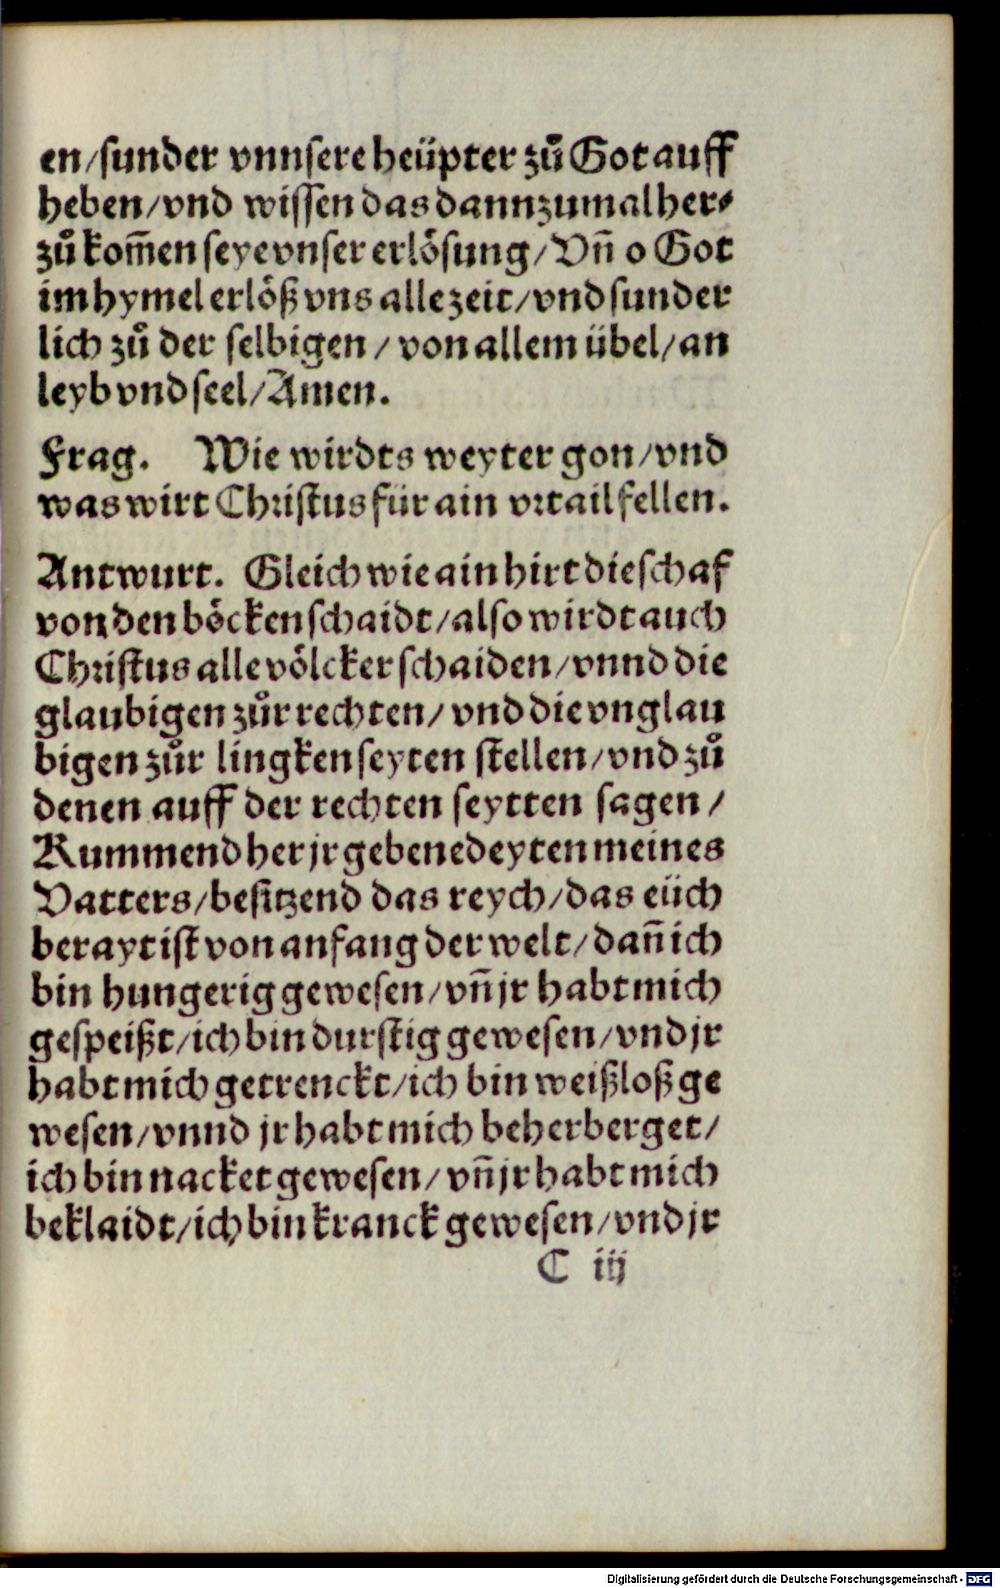 en/sunder vnnsere heüpter zů Got auff
heben/vnd wissen das dannzumal her⸗
zů kom̃en seye vnser erlösung/Vñ o Got
im hymel erlöß vns allezeit/vnd sunder
lich zů der selbigen/von allem übel/an
leyb vnd seel/Amen.
Frag. Wie wirdts weyter gon/vnd
was wirt Christus für ain vrtail fellen.
Antwurt. Gleich wie ain hirt die schaf
von den böcken schaidt/also wirdt auch
Christus alle völcker schaiden/vnnd die
glaubigen zůr rechten/vnd die vnglau
bigen zůr lingken seyten stellen/vnd zů
denen auff der rechten seytten sagen/
Kummend her jr gebenedeyten meines
Vatters/besitzend das reych/das eüch
berayt ist von anfang der welt/dañ ich
bin hungerig gewesen/vñ jr habt mich
gespeißt/ich bin durstig gewesen/vnd jr
habt mich getrenckt/ich bin weißloß ge
wesen/vnnd jr habt mich beherberget/
ich bin nacket gewesen/vñ jr habt mich
beklaidt/ich bin kranck gewesen/vnd jr
C iij
Digitalisierung gefördert durch die Deutsche Forschungsgemeinschaft - DFG